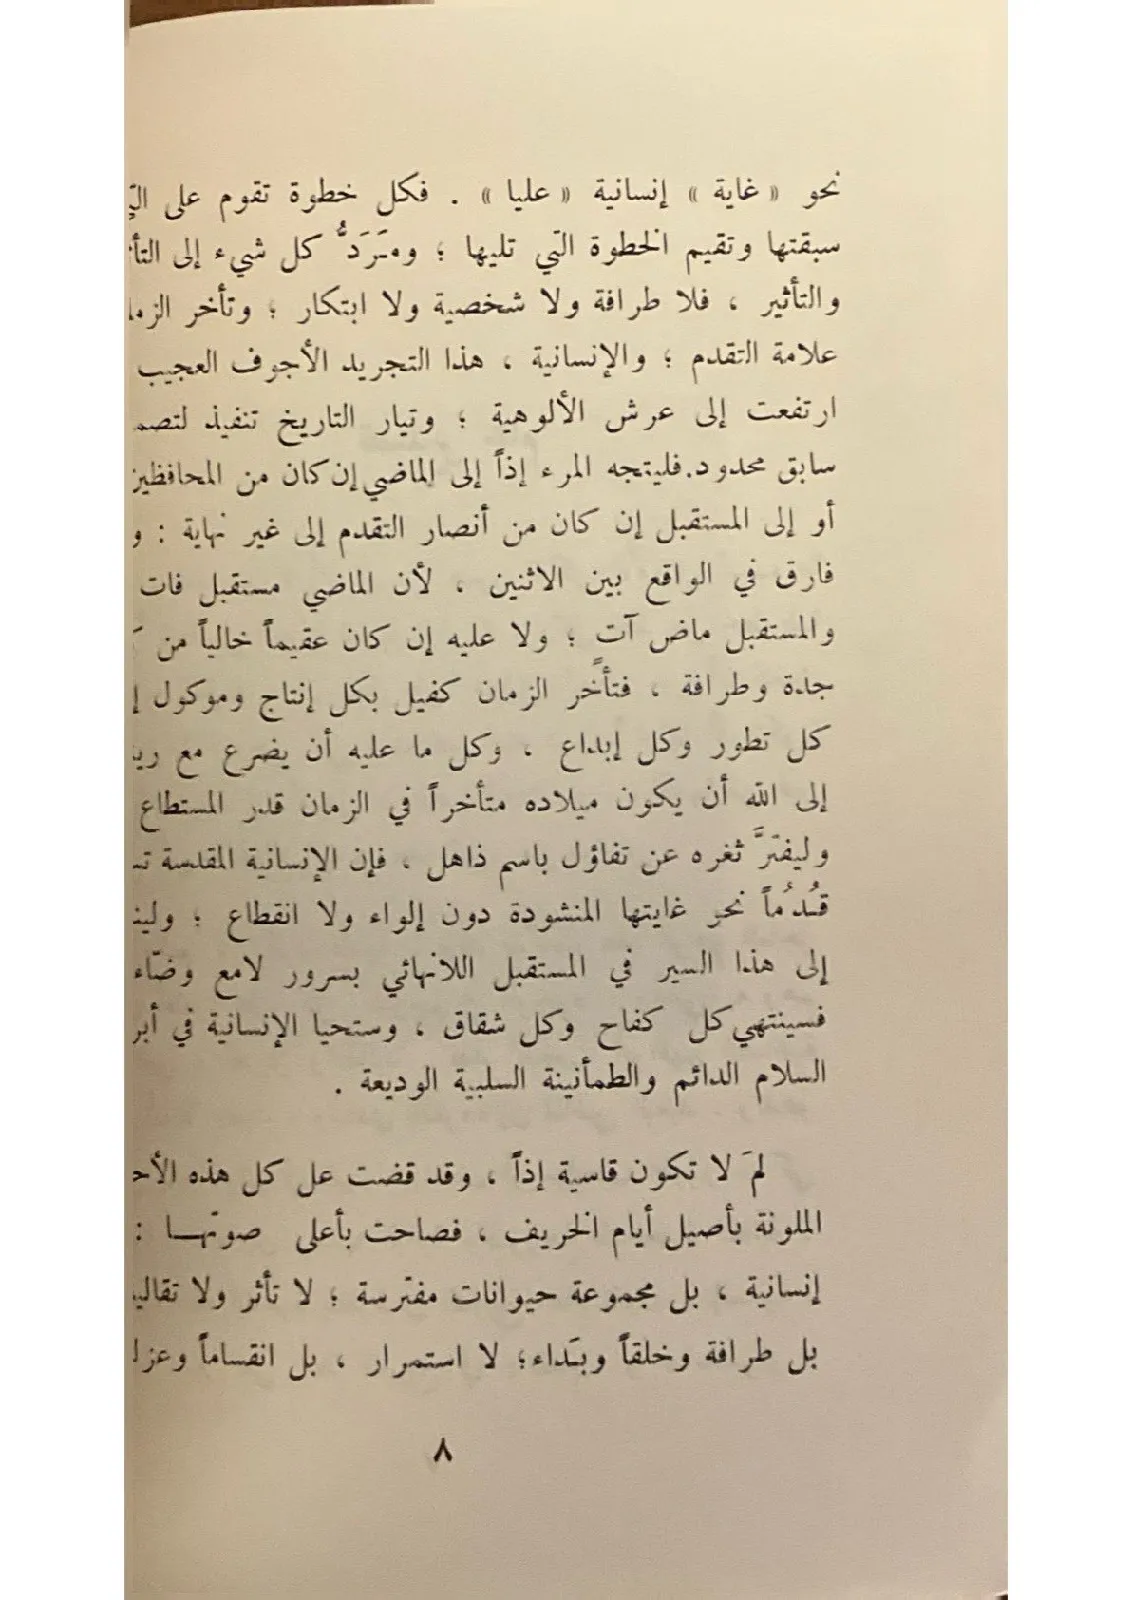 نحو « غاية » إنسانية « عليا » . فكل خطوة تقوم على
سبقتها وتقيم الخطوة التي تليها ؛ ومَرَدُّ كل شيء إلى
والتأثير ، فلا طرافة ولا شخصية ولا ابتكار ؛ وتأخر
علامة التقدم ؛ والإنسانية ، هذا التجريد الأجوف العجيب
ارتفعت إلى عرش الألوهية ؛ وتيار التاريخ تنفيذ
سابق محدود.فليتجه المرء إذاً إلى الماضي إن كان من
أو إلى المستقبل إن كان من أنصار التقدم إلى غير نهاية :
فارق في الواقع بين الاثنين ، لأن الماضي مستقبل فات
والمستقبل ماض آتٍ ؛ ولا عليه إن كان عقيماً خالياً من
جدة وطرافة ، فتأخر الزمان كفيل بكل إنتاج وموكول
كل تطور وكل إبداع ، وكل ما عليه أن يضرع مع
إلى الله أن يكون ميلاده متأخراً في الزمان قدر المستطاع
وليفترَّ ثغره عن تفاؤل باسم ذاهل ، فإن الإنسانية المقدسة
قُدُماً نحو غايتها المنشودة دون إلواء ولا انقطاع ؛
إلى هذا السير في المستقبل اللانهائي بسرور لامع وضّاء
فسينتهي كل كفاح وكل شقاق ، وستحيا الإنسانية في
السلام الدائم والطمأنينة السلبية الوديعة .
لمَ لا تكون قاسية إذاً ، وقد قضت عل كل هذه
الملونة بأصيل أيام الخريف ، فصاحت بأعلى صوتهـا :
إنسانية ، بل مجموعة حيوانات مفترسة ؛ لا تأثر ولا
بل طرافة وخلقاً وبَداء؛ لا استمرار ، بل انقساماً
٨